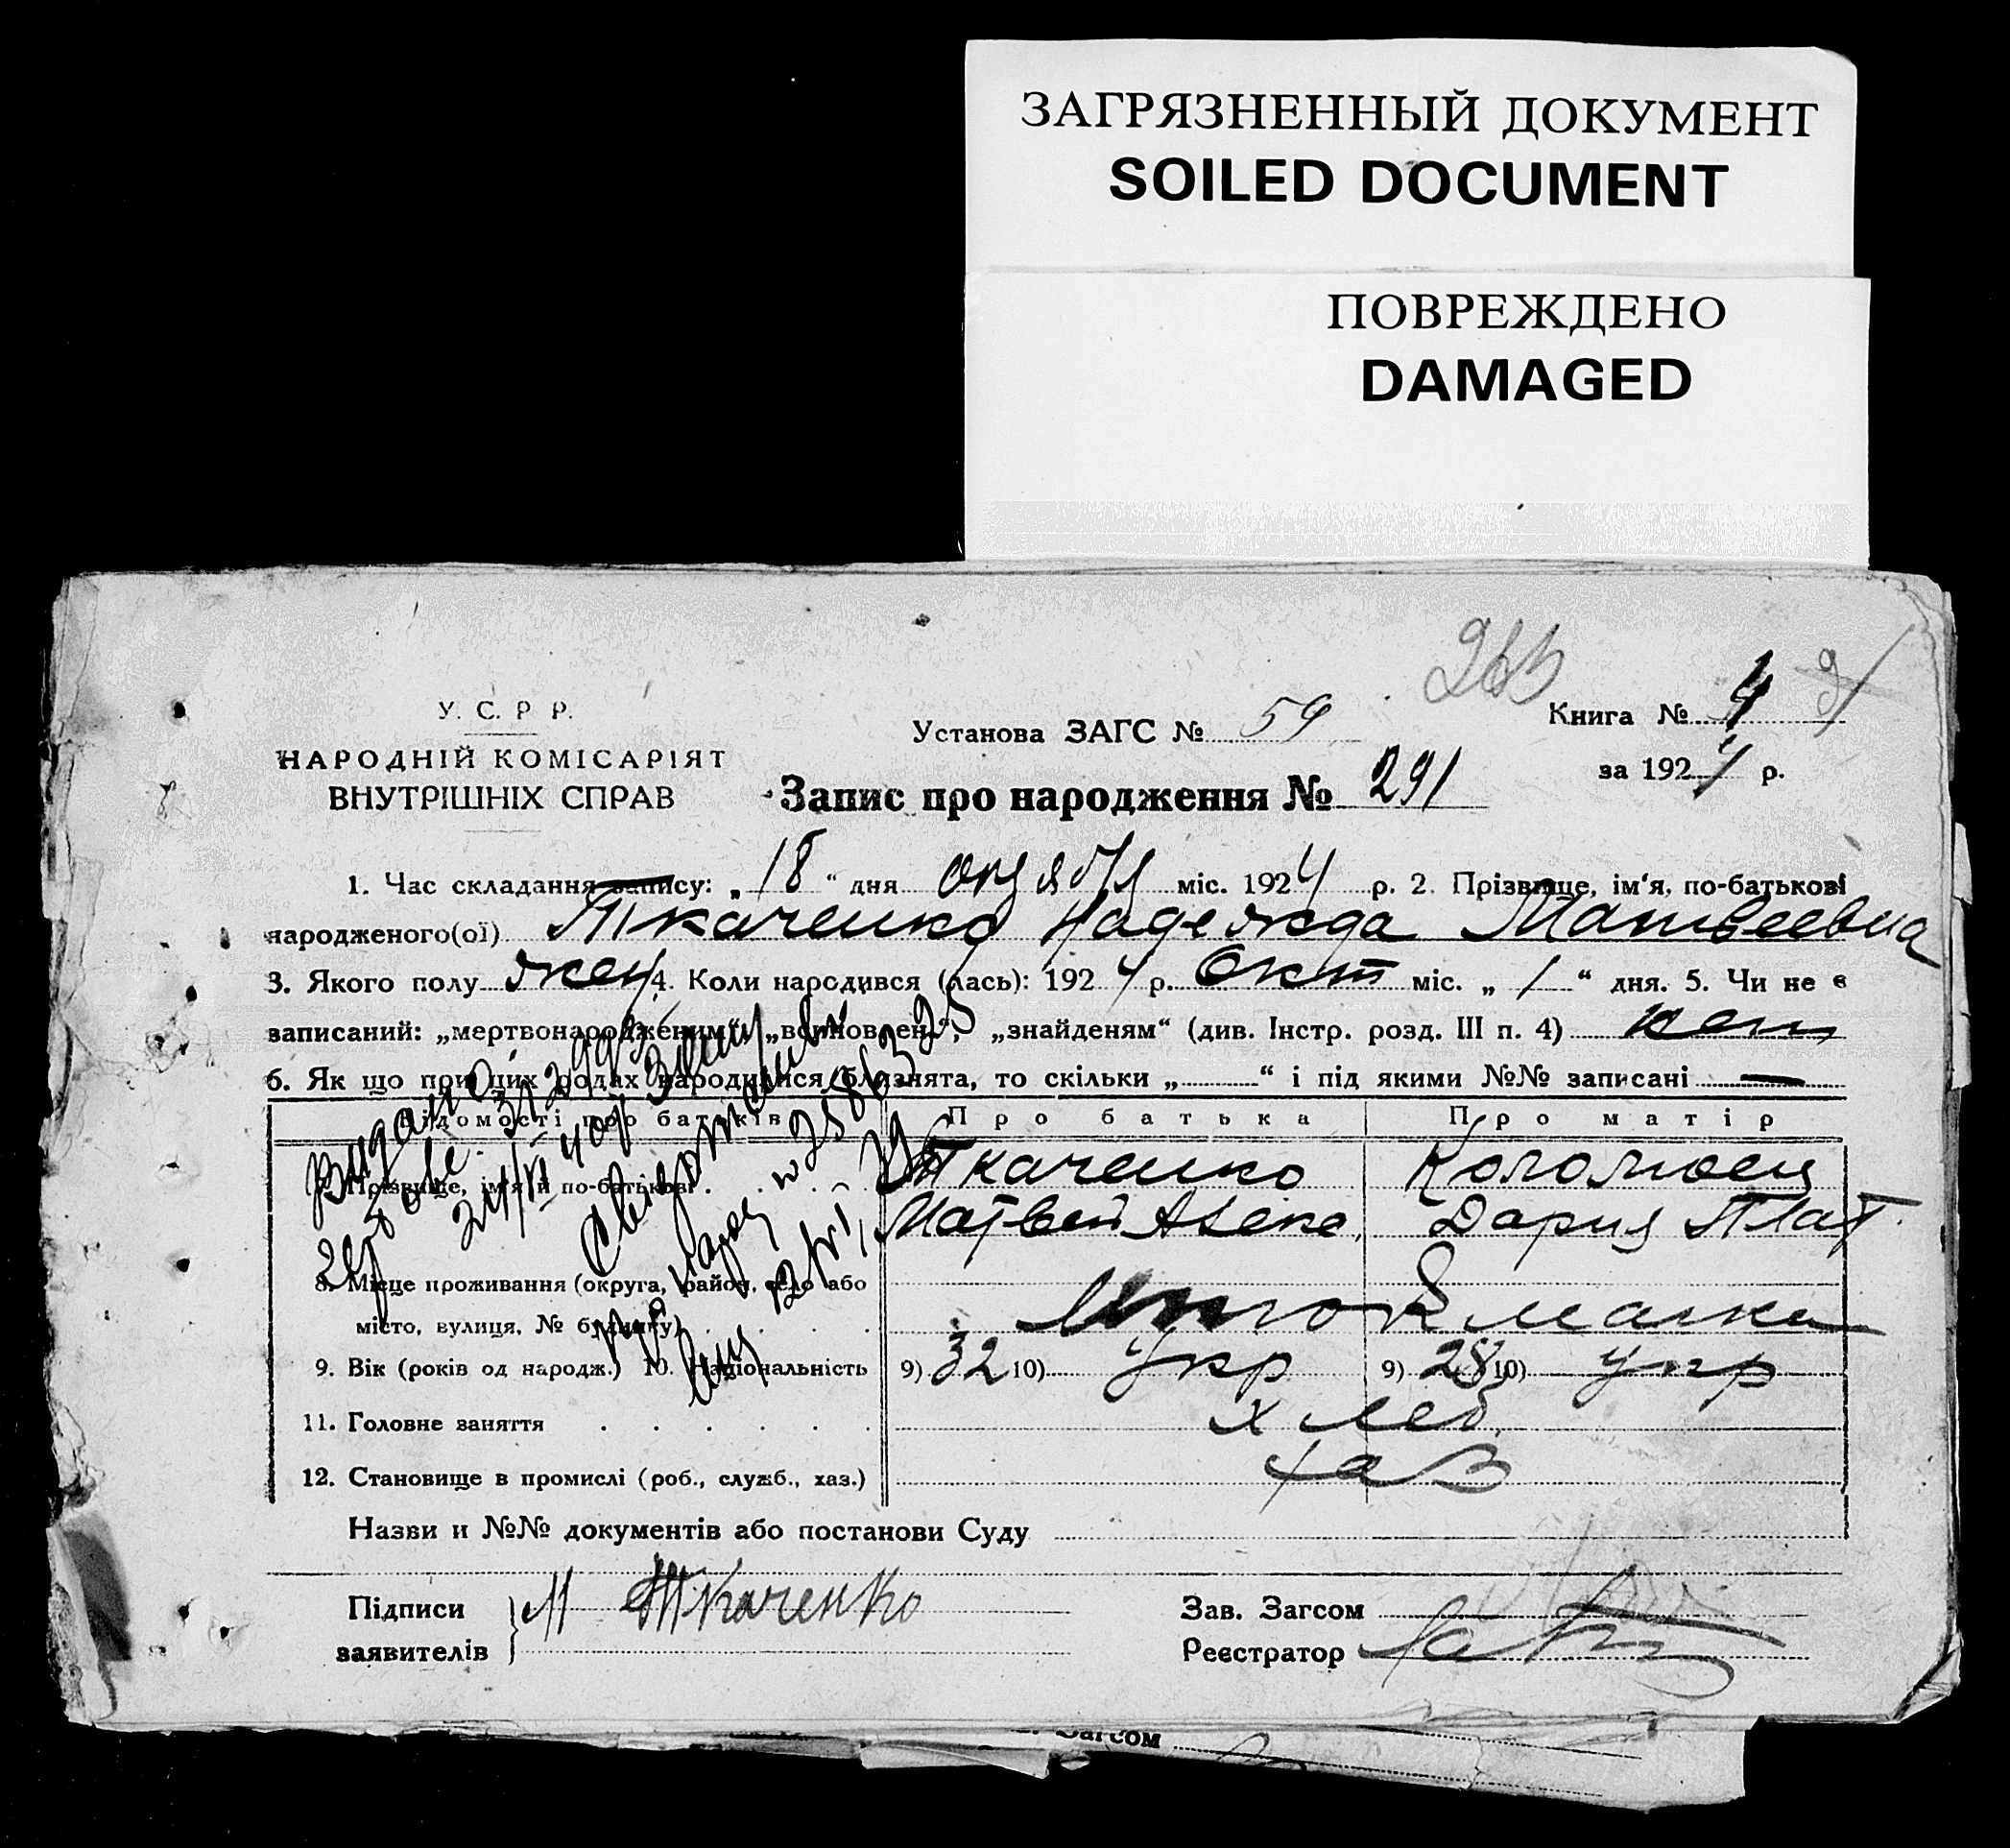 ЗАГРЯЗНЕННЫЙ ДОКУМЕНТ
SOILED DOCUMENT
ПОВРЕЖДЕНО
DAMAGED
У. С. Р Р.
НАРОДНІЙ КОМІСАРІЯТ
ВНУТРІШНІХ СПРАВ
Установа ЗАГС № 59
Книга № 4
за 1924 р.
Запис про народження № 291
1. Час складання запису: „18“ дня октября міс. 1924 р. 2. Прізвище, ім'я, по-батькові
народженого(ої) Ткаченко Надежда Матвеевна
3. Якого полу жен 4. Коли народився (лась): 1924 р. Окт міс. „1“ дня. 5. Чи не є
записаний: „мертвонародженим“, „знайденям“ (див. Інстр. розд. III п. 4) нет
6. Як що при цих родах народилися близнята, то скільки „ “ і під якими №№ записані —
Відомості про батьків
Про батька
Про матір
7. Прізвище, ім'я й по-батькові
Ткаченко
Матвей Алекс.
Коломоец
Дария Плат.
8. Місце проживання (округа, район, село або
місто, вулиця, № будинку)
Токмачка
9. Вік (років од народж.) 10. Національність
9) 32 10) Укр
9) 28 10) Укр
11. Головне заняття
хлеб
12. Становище в промислі (роб., служб., хаз.)
хаз
Назви й №№ документів або постанови Суду
Підписи
заявителів
М Ткаченко
Зав. Загсом
Реєстратор
Видано
Загсом